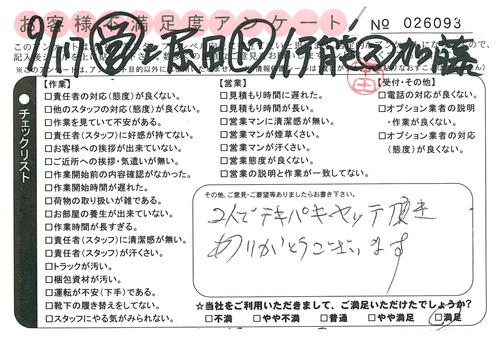 お客様不満足度アンケート
№ 026093
加藤
チェックリスト
【作業】
□責任者の対応(態度)が良くない。
□他のスタッフの対応(態度)が良くない。
□作業を見ていて不安がある。
□責任者(スタッフ)に好感が持てない。
□お客様への挨拶が出来ていない。
□ご近所への挨拶・気遣いが無い。
□作業開始前の内容確認がなかった。
□作業開始時間が遅れた。
□荷物の取り扱いが雑である。
□お部屋の養生が出来ていない。
□作業時間が長すぎる。
□責任者(スタッフ)に清潔感が無い。
□責任者(スタッフ)が汗くさい。
□トラックが汚い。
□梱包資材が汚い。
□運転が不安(下手)である。
□靴下の履き替えをしてない。
□スタッフにやる気がみられない。
【営業】
□見積もり時間に遅れた。
□見積もり時間が長い。
□営業マンに清潔感が無い。
□営業マンが煙草くさい。
□営業マンが汗くさい。
□営業態度が良くない。
□営業の説明と作業が一致してない。
【受付・その他】
□電話の対応が良くない。
□オプション業者の説明
・作業が良くない。
□オプション業者の対応
(態度)が良くない。
その他、ご意見・ご要望等ありましたらお書き下さい。
2人でテキパキヤッテ頂き
ありがとうございます
☆当社をご利用いただきまして、ご満足いただけたでしょうか?
□不満 □やや不満 □普通 □やや満足 □満足